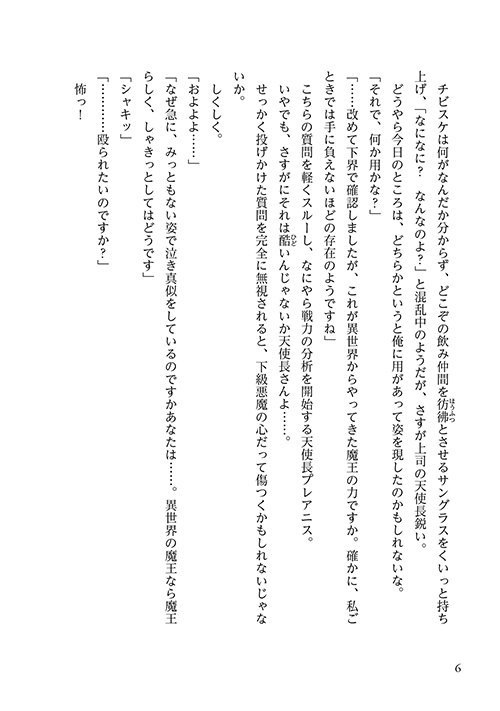 チビスケは何がなんだか分からず、どこぞの飲み仲間を彷彿とさせるサングラスをくいっと持ち
ほうふつ
上げ、「なになに？　なんなのよ？」と混乱中のようだが、さすが上司の天使長鋭い。
どうやら今日のところは、どちらかというと俺に用があって姿を現したのかもしれないな。
「それで、何か用かな？」
「……改めて下界で確認しましたが、これが異世界からやってきた魔王の力ですか。確かに、私ご
ときでは手に負えないほどの存在のようですね」
こちらの質問を軽くスルーし、なにやら戦力の分析を開始する天使長プレアニス。
いやでも、さすがにそれは酷いんじゃないか天使長さんよ……。
ひど
せっかく投げかけた質問を完全に無視されると、下級悪魔の心だって傷つくかもしれないじゃな
いか。
しくしく。
「およよよ……」
「なぜ急に、みっともない姿で泣き真似をしているのですかあなたは……。異世界の魔王なら魔王
らしく、しゃきっとしてはどうです」
「シャキッ」
「…………殴られたいのですか？」
怖っ！
6